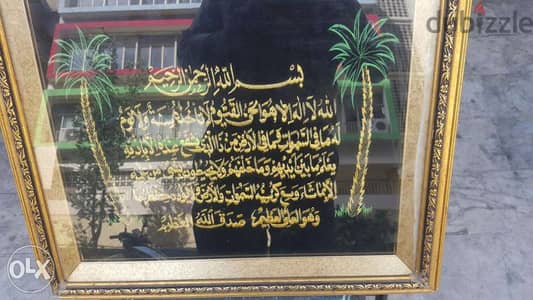 dubizzle
بسم الله الرحمن الرحيم
الله لا اله الا هو الحي القيوم لا تاخذه سنة ولا نوم
له ما في السموات وما في الارض من ذا الذي يشفع عنده الا باذنه
يعلم ما بين ايديهم وما خلفهم ولا يحيطون بشيء من علمه
الا بما شاء وسع كرسيه السموات والارض ولا يؤده حفظهما
وهو العلي العظيم صدق الله العظيم
OLX